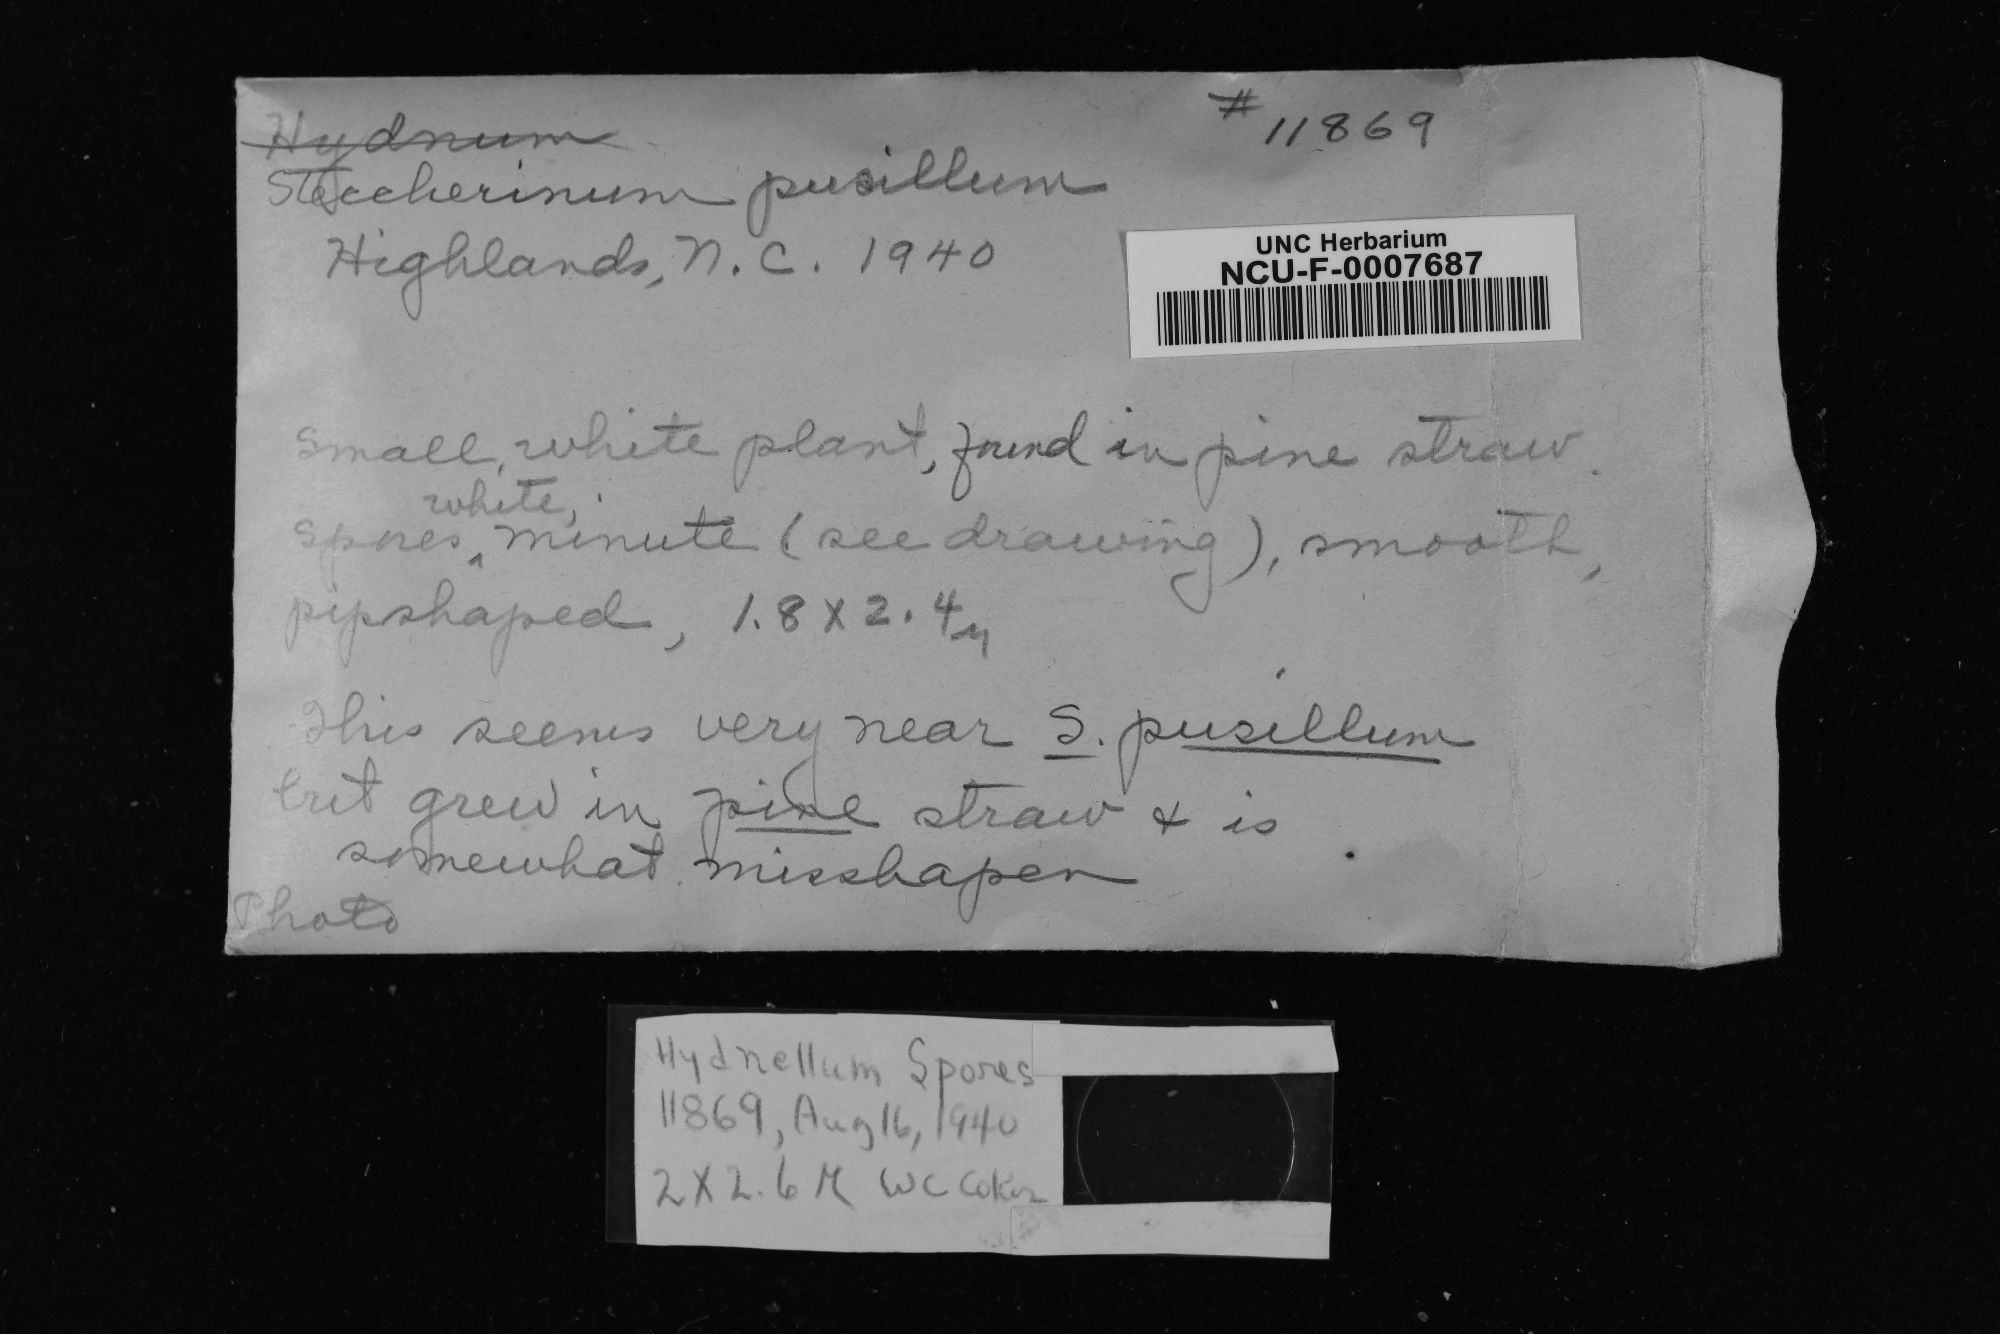 # 11869
Hydnum
Steccherinum pusillum
Highlands, N.C. 1940
UNC Herbarium
NCU-F-0007687
Small, white plant, found in pine straw.
white,
Spores ^ minute (see drawing), smooth,
pipshaped, 1.8 x 2.4 µ
This seems very near S. pusillum
but grew in pine straw & is
somewhat misshapen
Photo
Hydnellum Spores
11869, Aug 16, 1940
2 X 2.6 µ WC Coker